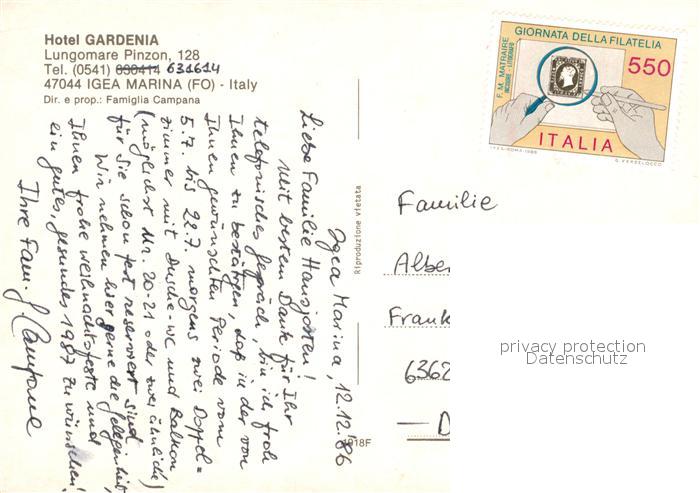 Hotel GARDENIA
Lungomare Pinzon, 128
Tel. (0541) 630414 631614
47044 IGEA MARINA (FO) - Italy
Dir. e prop.: Famiglia Campana
Igea Marina, 12.12.86
Liebe Familie Hansjosten!
Mit bestem Dank für Ihr
telefonisches Gespräch, bin ich froh
Ihnen zu bestätigen, daß in der von
Ihnen gewünschten Periode vom
5.7. bis 22.7 morgens zwei Doppel=
zimmer mit Dusche-WC und Balkon
(möglichst Nr. 20-21 oder zwei ähnliche)
für Sie schon fest reserviert sind.
Wir nehmen hier gerne die Gelegenheit,
Ihnen frohe Weihnachtsfeste und
ein gutes, gesundes 1987 zu wünschen!
Ihre Fam. Campana
Riproduzione vietata
918F
GIORNATA DELLA FILATELIA
F. M. MATRAIRE
INCISORE - LITOGRAFO
550
ITALIA
I.P.Z.S.-ROMA-1986
G. VERDELOCCO
Familie
Albe
Frank
6362
D
privacy protection
Datenschutz